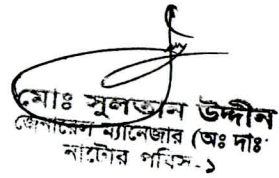 মোঃ সুলতান উদ্দীন
জেনারেল ম্যানেজার (অঃ দাঃ
নাটোর পবিস-১